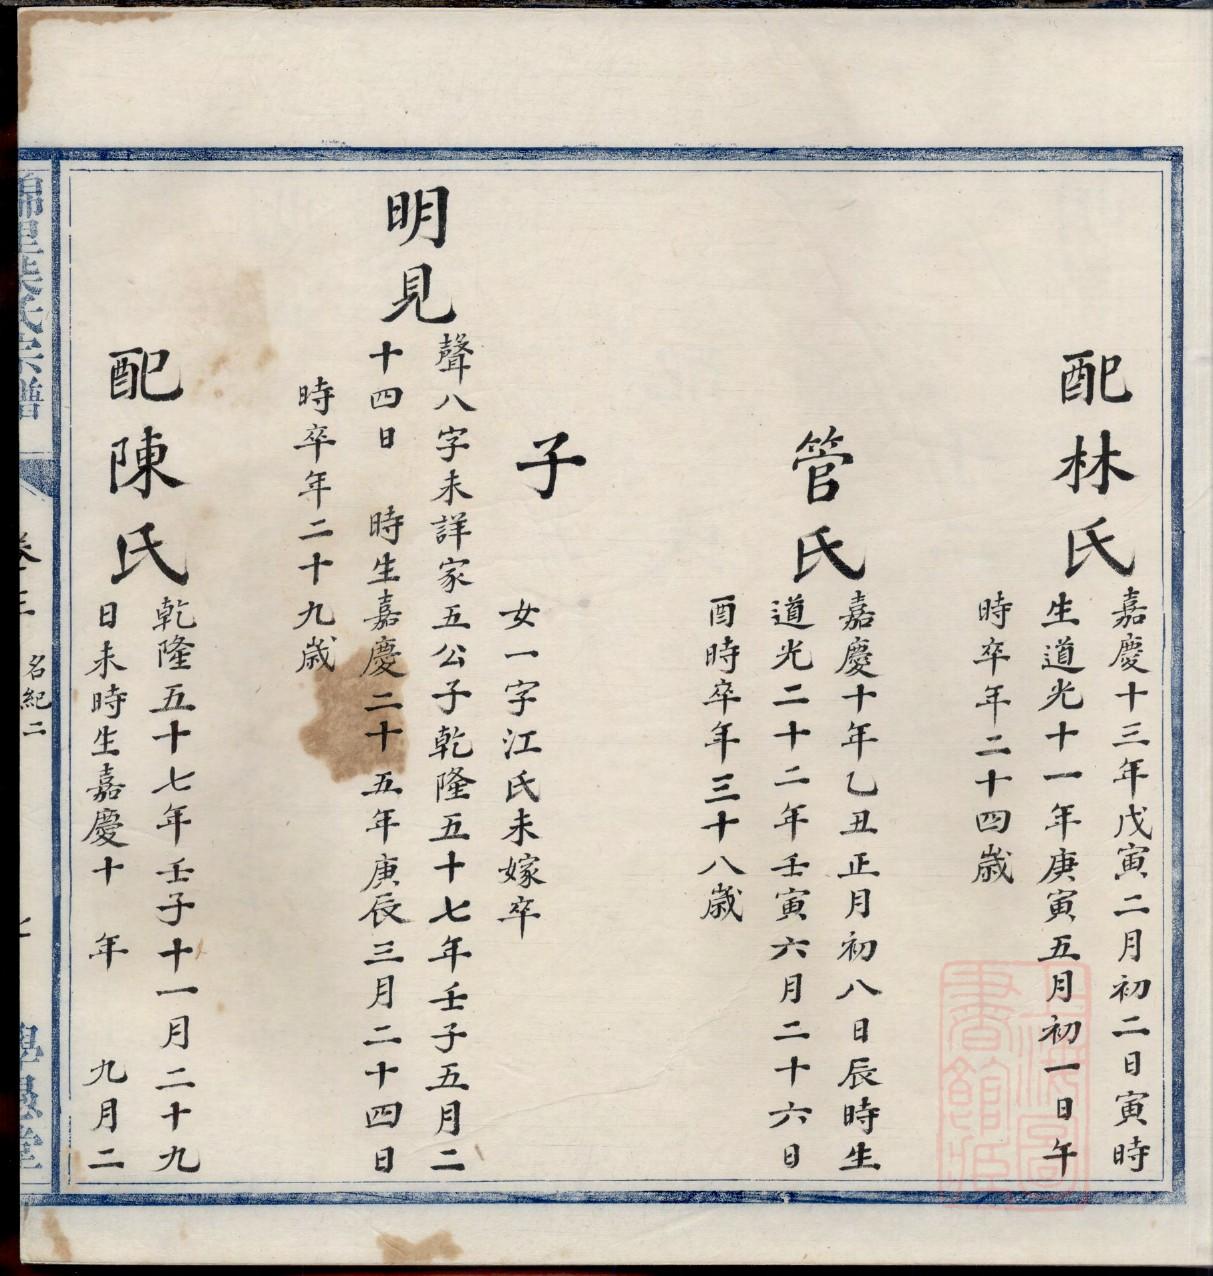 配林氏
嘉慶十三年戊寅二月初二日寅時
生道光十一年庚寅五月初一日午
時卒年二十四歲
管氏
嘉慶十年乙丑正月初八日辰時生
道光二十二年壬寅六月二十六日
酉時卒年三十八歲
子
女一字江氏未嫁卒
明見
聲八字未詳家五公子乾隆五十七年壬子五月二
十四日 時生嘉慶二十五年庚辰三月二十四日
時卒年二十九歲
配陳氏
乾隆五十七年壬子十一月二十九
日未時生嘉慶十 年 九月二
氏宗譜
名紀二